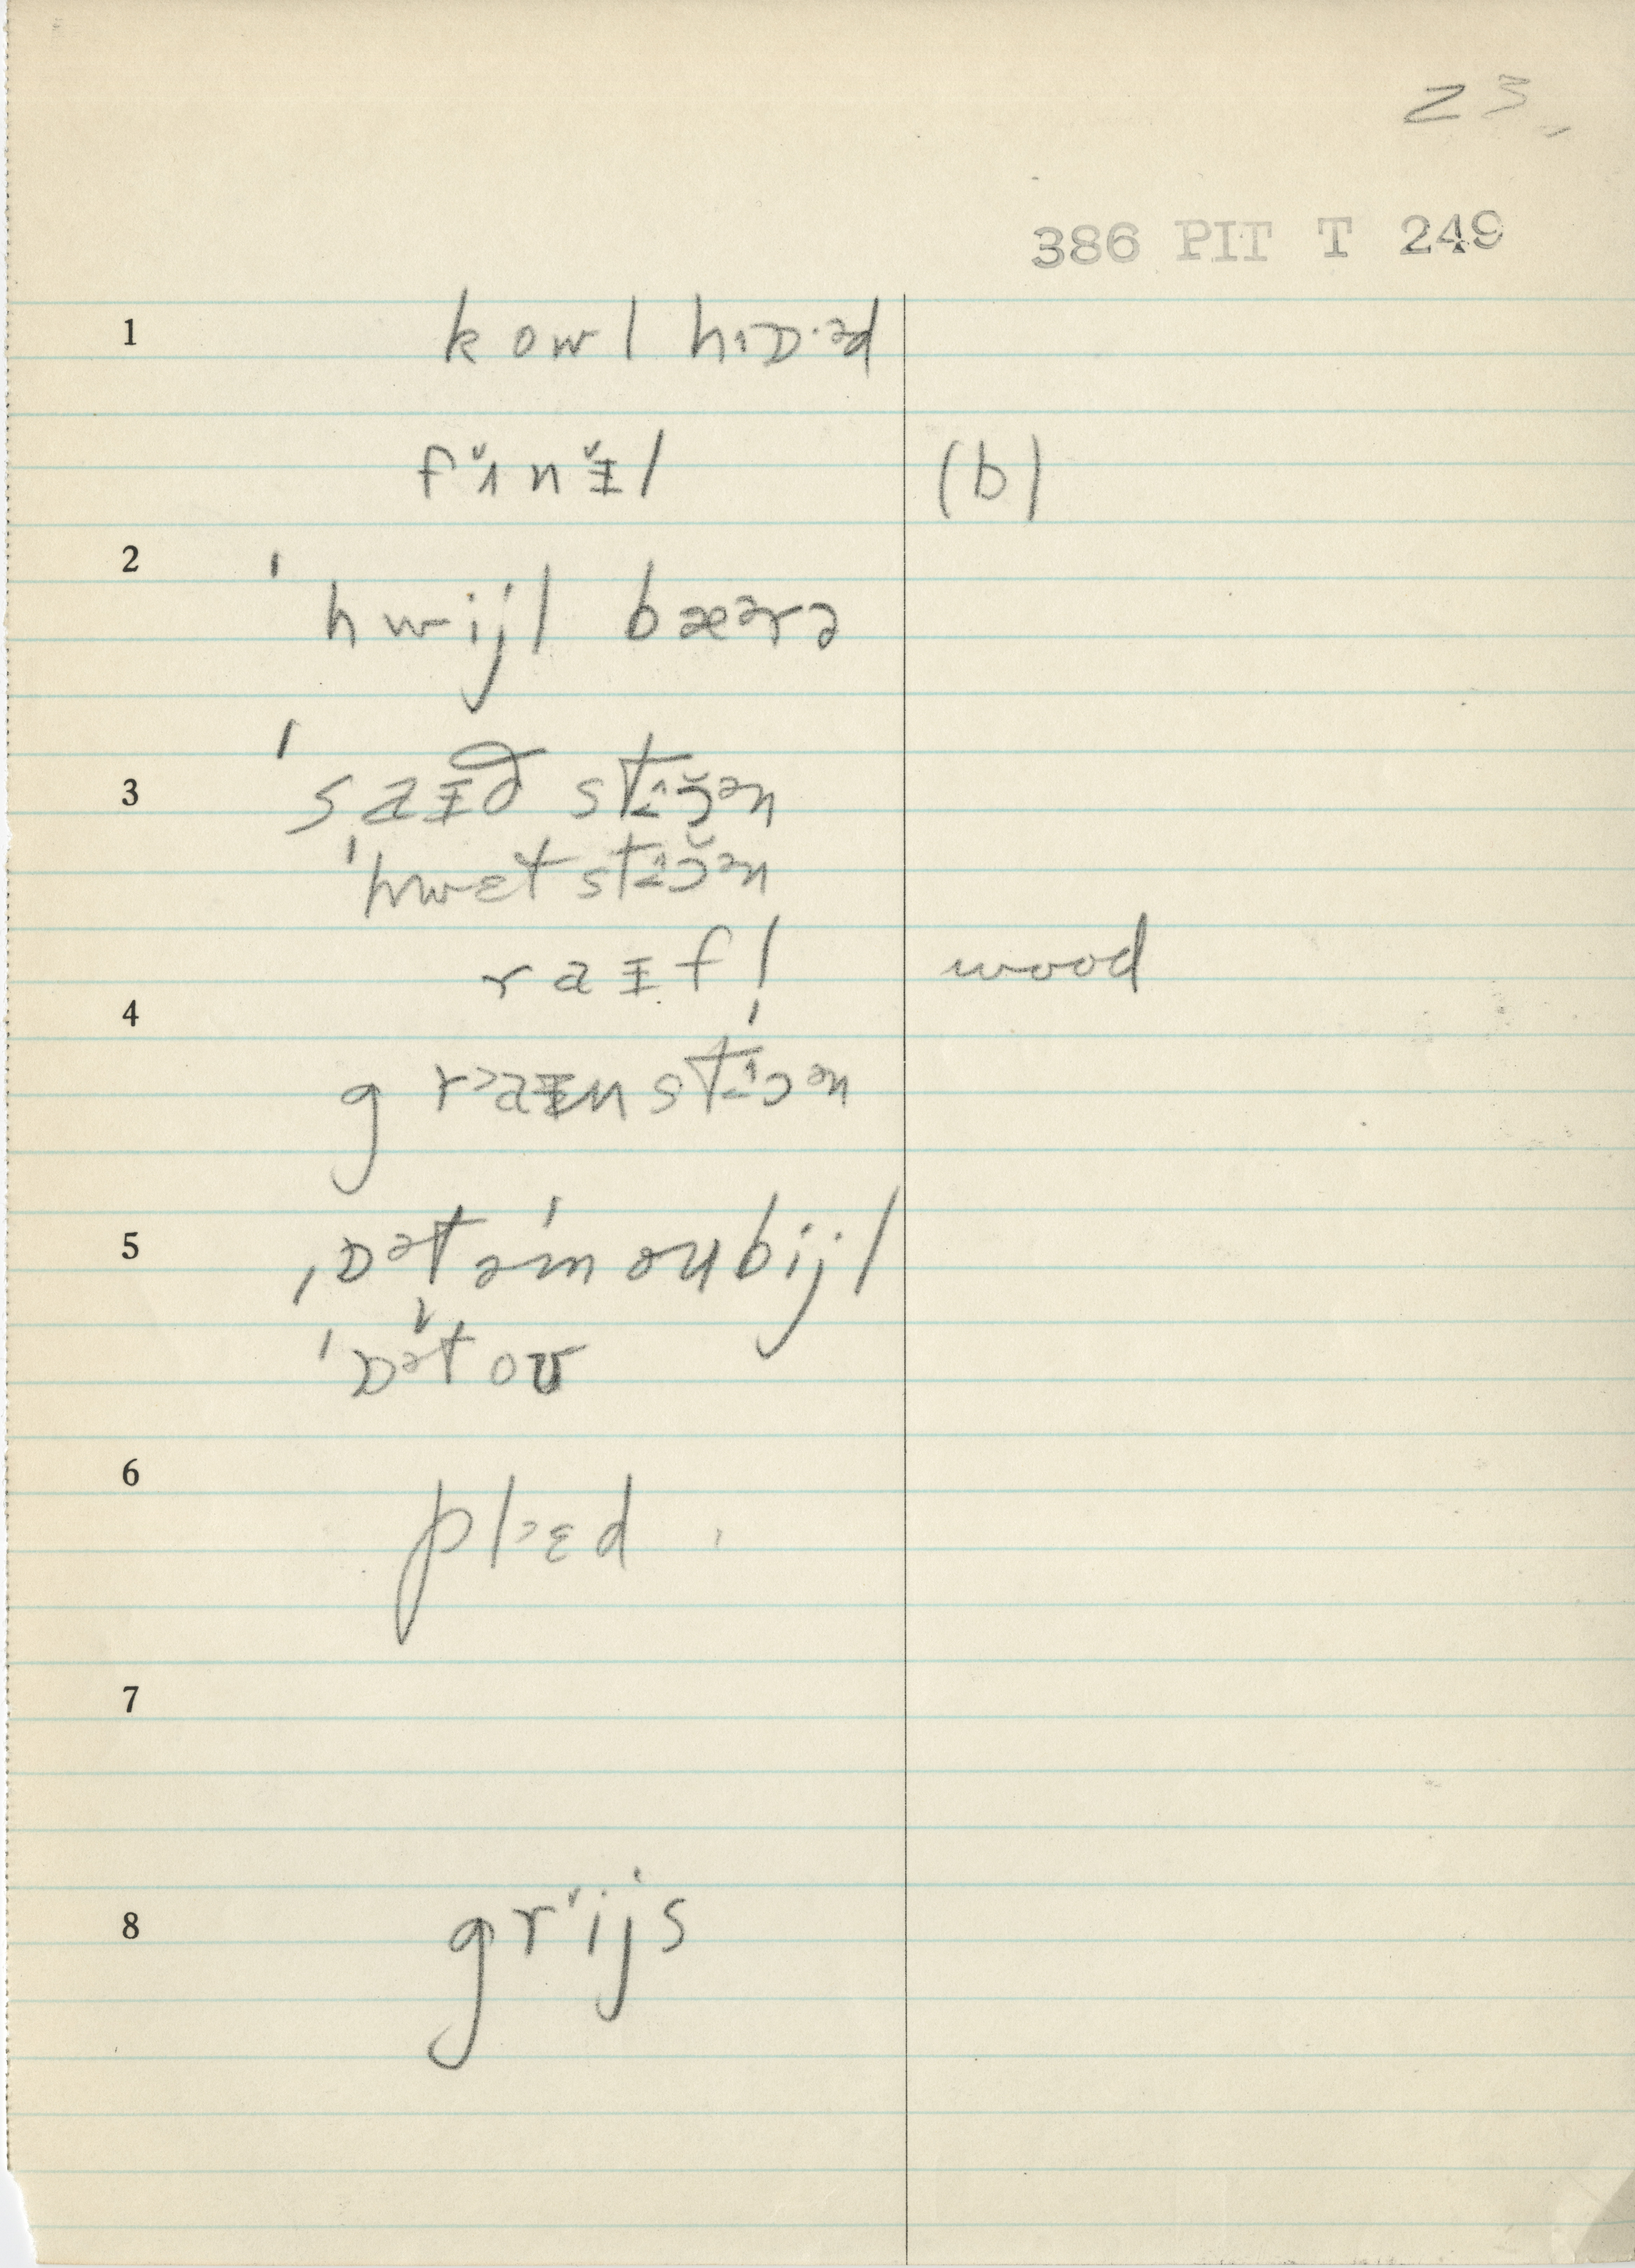 23
386 PIT T 249
1 kowl hɪɒ·ᵊd
fˇɪnˇɪ̵l (b)
2 ˈhwijl bæᵊrə
3 ˈsaɪ̵ð stɪɔ̆ᵊn
ˈhwɛt stɪɔ̆ᵊn
raɪ̵fl wood
4
grᵊaɪ̵n stɪɔᵊn
5 ˌɒᵊtəmˈoʊbijl
ˈɒᵊtˇoʊ
6 pl˃ɛd
7
8 grˇijs